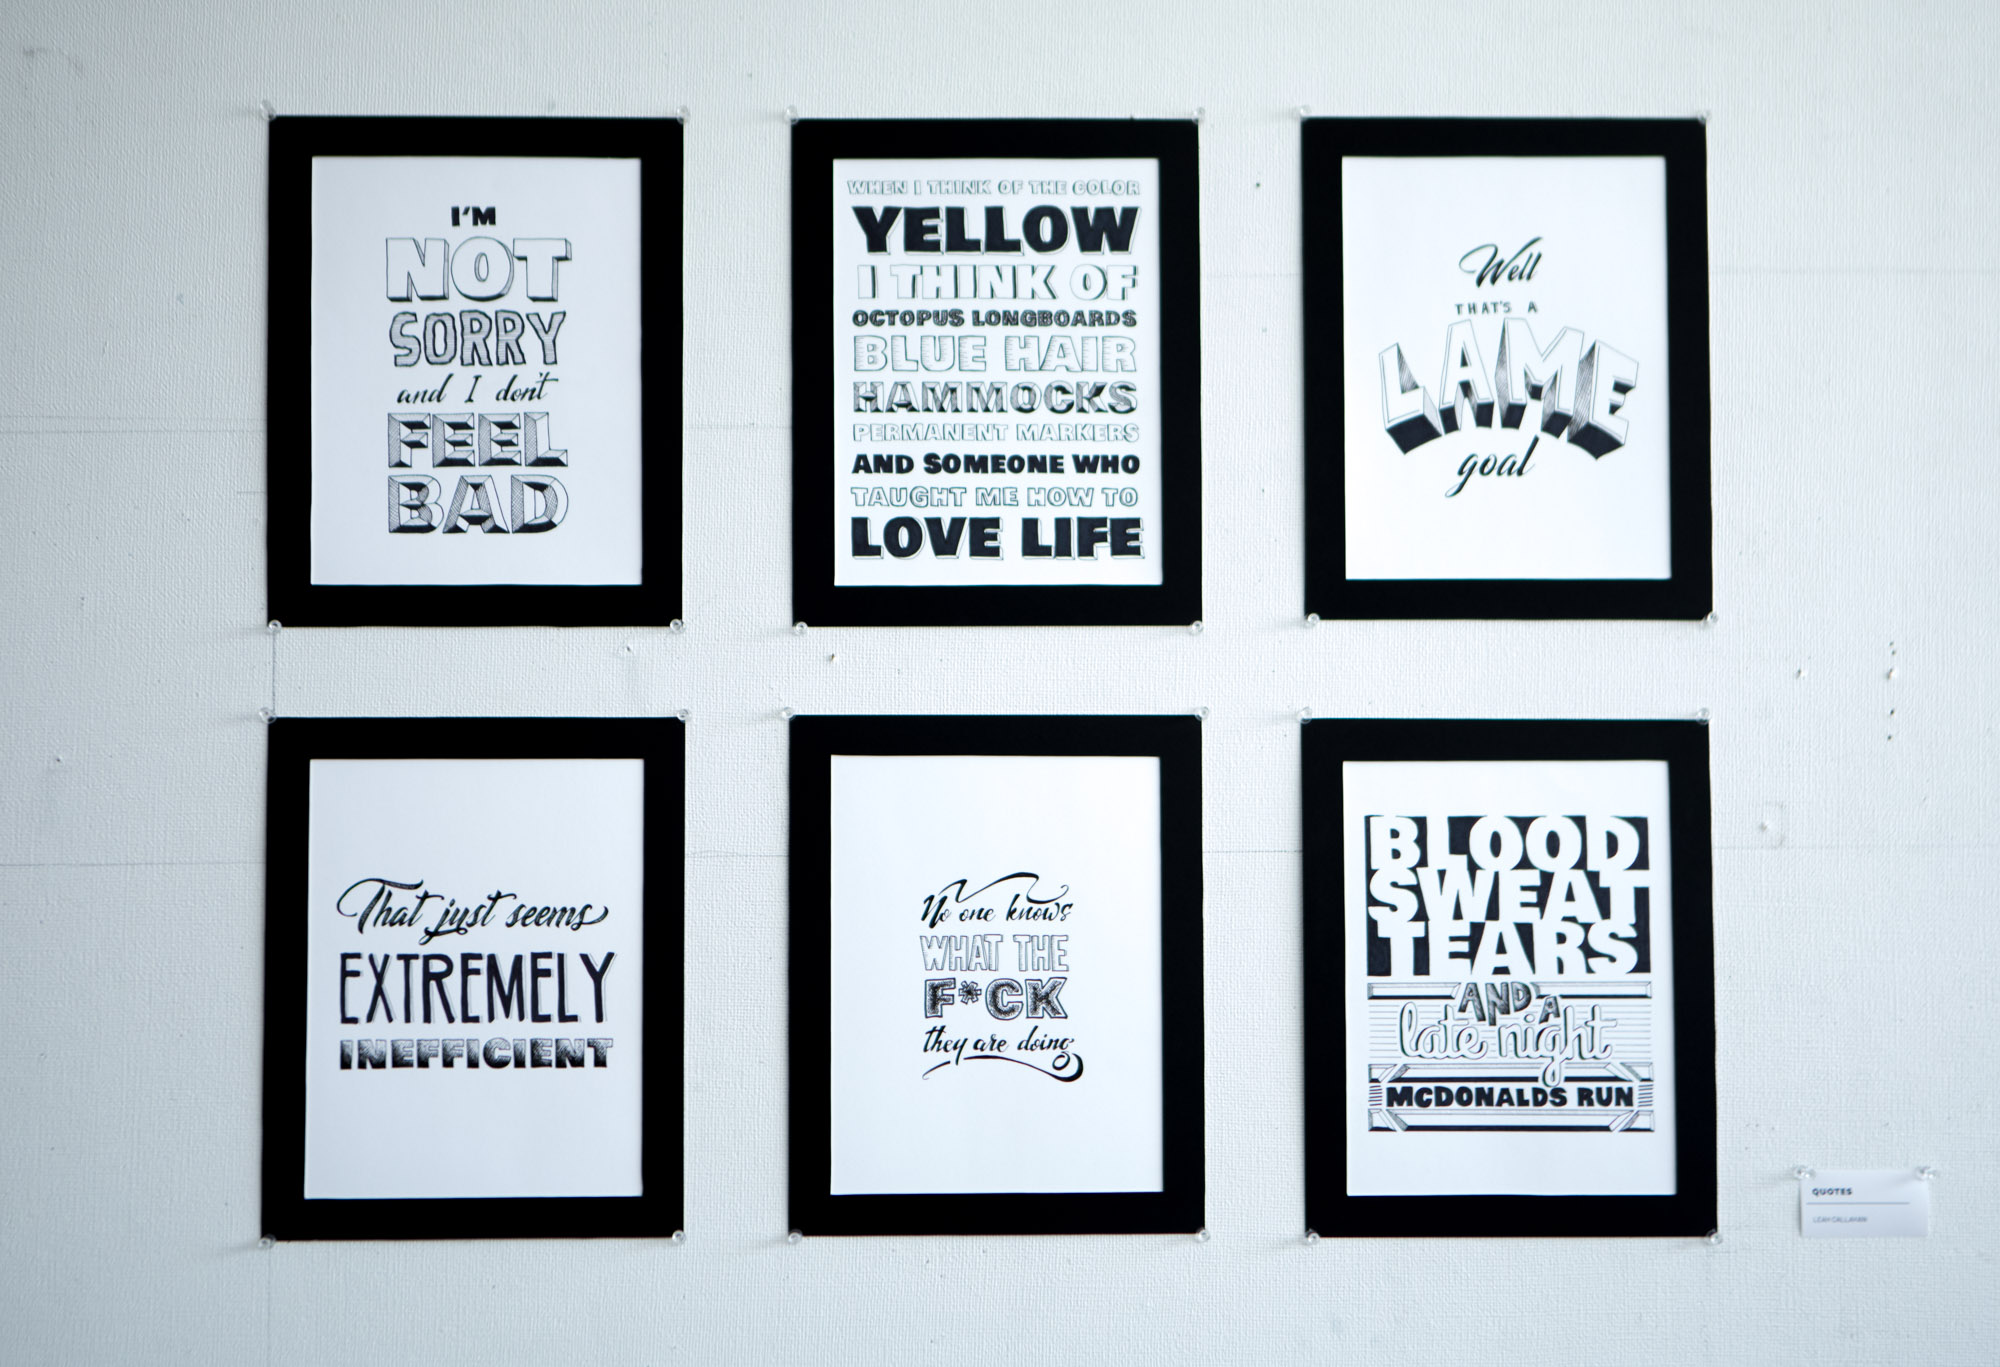 I'M
NOT
SORRY
and I don't
FEEL
BAD
WHEN I THINK OF THE COLOR
YELLOW
I THINK OF
OCTOPUS LONGBOARDS
BLUE HAIR
HAMMOCKS
PERMANENT MARKERS
AND SOMEONE WHO
TAUGHT ME HOW TO
LOVE LIFE
Well
THAT'S A
LAME
goal
That just seems
EXTREMELY
INEFFICIENT
No one knows
WHAT THE
F*CK
they are doing
BLOOD
SWEAT
TEARS
AND A
late night
MCDONALDS RUN
QUOTES